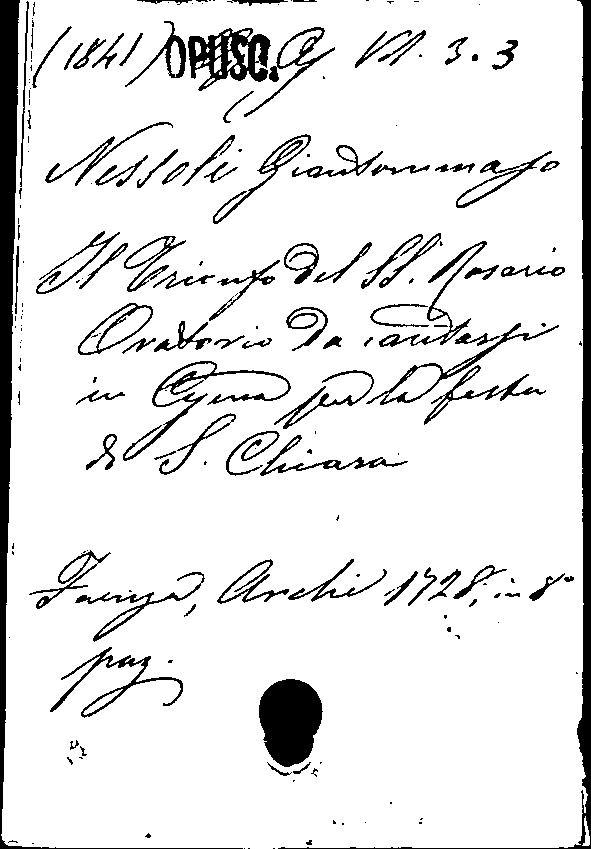 (1841) OPUSC. VI. 3.3
Nessoli Giantommaso
Il Trionfo del SS. Rosario
Oratorio da cantarsi
in per la festa
di S. Chiara
Faenza, Archi 1728, in 8°
pag.